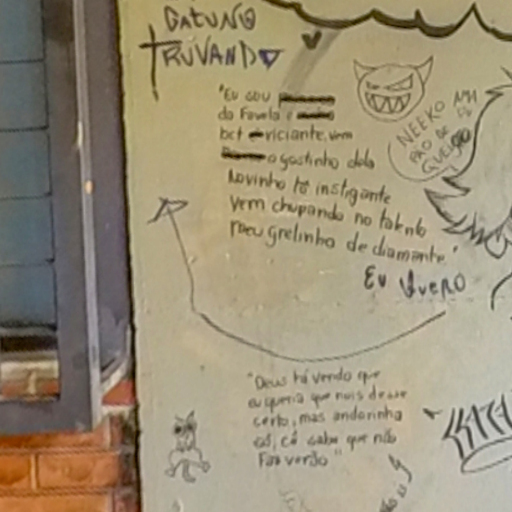 GATUNO
TRUVANDO
"Eu sou
da Favela e
bct viciante, vem
o gostinho dela
novinho tá instigante
vem chupando no talento
meu grelinho de diamante."
Eu Quero
NEEKO
PÃO DE
QUEIJO
"Deus tá vendo que
eu queria que nois desse
certo, mas andorinha
só, cê sabe que não
Faz verão"